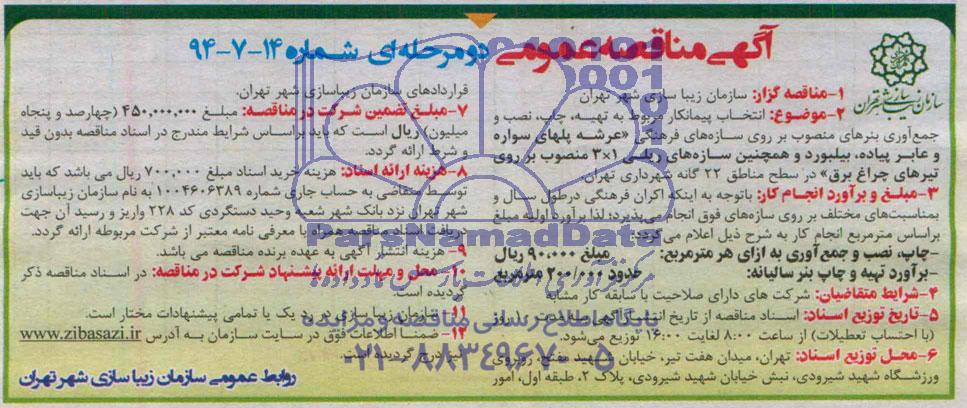 آگهی مناقصه عمومی دو مرحله ای شماره ۱۴-۷-۹۴
سازمان زیباسازی شهر تهران
۱-مناقصه گزار: سازمان زیبا سازی شهر تهران
۲-موضوع: انتخاب پیمانکار مربوط به تهیه، چاپ، نصب و
جمع‌آوری بنرهای منصوب بر روی سازه‌های فرهنگی «عرشه پلهای سواره
و عابر پیاده، بیلبورد و همچنین سازه‌های ریلی ۱×۳ منصوب بر روی
تیرهای چراغ برق» در سطح مناطق ۲۲ گانه شهرداری تهران
۳-مبلغ و برآورد انجام کار: باتوجه به اینکه اکران فرهنگی درطول سال و
بمناسبت‌های مختلف بر روی سازه‌های فوق انجام می‌پذیرد؛ لذا برآورد اولیه مبلغ
براساس مترمربع انجام کار به شرح ذیل اعلام می‌گردد:
-چاپ، نصب و جمع آوری به ازای هر مترمربع: مبلغ ۹۰،۰۰۰ ریال
-برآورد تهیه و چاپ بنر سالیانه: حدود ۲۰۰/۰۰۰ مترمربع
۴-شرایط متقاضیان: شرکت های دارای صلاحیت با سابقه کار مشابه
۵-تاریخ توزیع اسناد: اسناد مناقصه از تاریخ انتشار آگهی به مدت ۱۰ روز
(با احتساب تعطیلات) از ساعت ۸:۰۰ لغایت ۱۶:۰۰ توزیع می‌شود.
۶-محل توزیع اسناد: تهران، میدان هفت تیر، خیابان شهید مفتح، روبروی
ورزشگاه شهید شیرودی، نبش خیابان شهید شیرودی، پلاک ۲، طبقه اول، امور
قراردادهای سازمان زیباسازی شهر تهران.
۷-مبلغ تضمین شرکت در مناقصه: مبلغ ۴۵۰,۰۰۰,۰۰۰ (چهارصد و پنجاه
میلیون) ریال است که باید براساس شرایط مندرج در اسناد مناقصه بدون قید
و شرط ارائه گردد.
۸-هزینه ارائه اسناد: هزینه خرید اسناد مبلغ ۷۰۰,۰۰۰ ریال می باشد که باید
توسط متقاضی به حساب جاری شماره ۱۰۰۴۶۰۶۳۸۹ به نام سازمان زیباسازی
شهر تهران نزد بانک شهر شعبه وحید دستگردی کد ۲۲۸ واریز و رسید آن جهت
دریافت اسناد مناقصه همراه با معرفی نامه معتبر از شرکت مربوطه ارائه گردد.
۹- هزینه انتشار آگهی به عهده برنده مناقصه می باشد.
۱۰- محل و مهلت ارائه پیشنهاد شرکت در مناقصه: در اسناد مناقصه ذکر
گردیده است.
۱۱- سازمان زیباسازی در رد یک یا تمامی پیشنهادات مختار است.
۱۲- ضمنا اطلاعات فوق در سایت سازمان به آدرس www.zibasazi.ir
نیز درج گردیده است.
روابط عمومی سازمان زیبا سازی شهر تهران
ParsNamadData
پایگاه اطلاع رسانی مناقصه و مزایده
۰۲۱-۸۸۳۴۹۶۷۰-۵